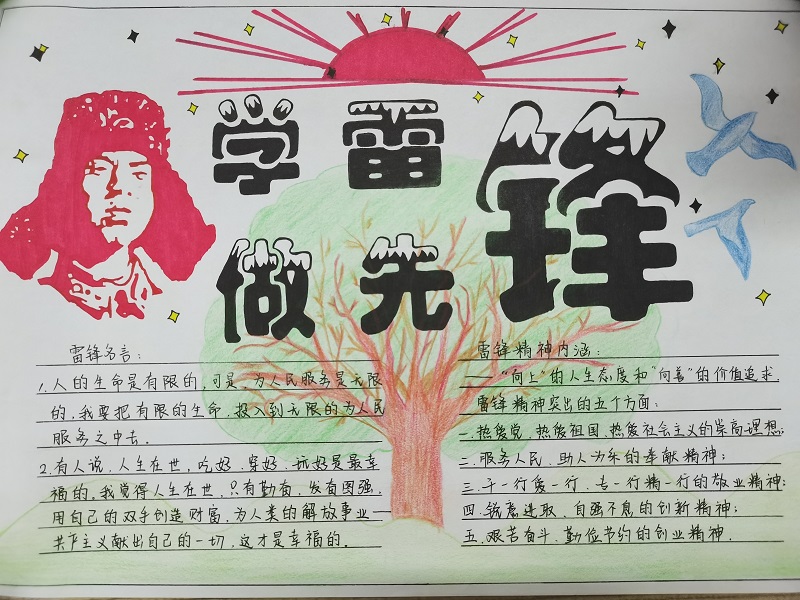 学雷锋
做先
雷锋名言：
1.人的生命是有限的,可是,为人民服务是无限
的,我要把有限的生命,投入到无限的为人民
服务之中去.
2.有人说,人生在世,吃好,穿好,玩好是最幸
福的,我觉得人生在世,只有勤奋,发奋图强,
用自己的双手创造财富,为人类的解放事业—
共产主义献出自己的一切,这才是幸福的.
雷锋精神内涵：
——"向上"的人生态度和"向善"的价值追求.
雷锋精神突出的五个方面:
一.热爱党,热爱祖国,热爱社会主义的崇高理想;
二.服务人民,助人为乐的奉献精神;
三.干一行爱一行,专一行精一行的敬业精神;
四.锐意进取,自强不息的创新精神;
五.艰苦奋斗,勤俭节约的创业精神.